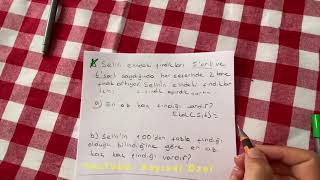 Selin elindeki fındıkları 5'erli ve
6'şarlı saydığında her seferinde 2 tane
fındık artıyor. Selin'in elindeki fındıklar
için;
a) En az kaç fındığı vardır?
Ekok(5,6)=
b) Selin'in 100'den fazla fındığı
olduğu bilindiğine göre en az
kaç fındığı vardır?
YouTube:
Özel